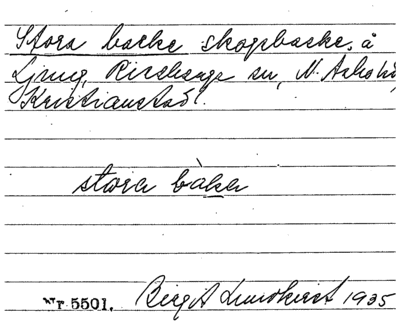 Stora backe skogsbacke, å
Ljung, Riseberga sn, N. Åsbo hd,
Kristianstad.
stora bàka
Nr 5501. Birgit Lundkvist 1935